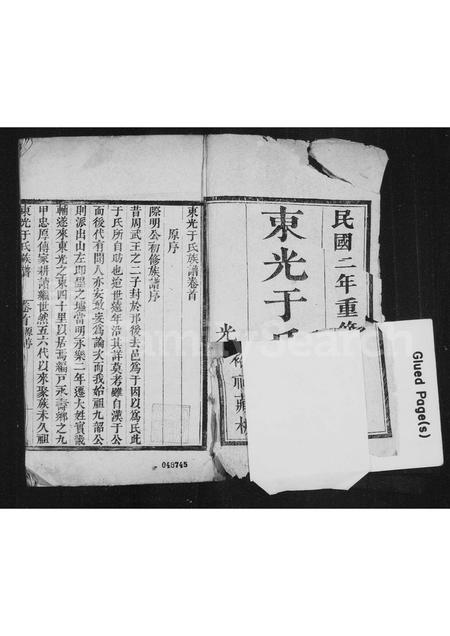 民國二年重修
東光于氏
光
裕
藏板
東光于氏族譜卷首
原序
際明公初修族譜序
昔周武王之二子封於邘後去邑爲于因以爲氏此
于氏所自助也迨世遠年沿其詳莫考雖自漢于公
而後代有聞人亦安敢妄爲論次而我始祖九韶公
則派出山左即墨之墟當明永樂二年遷大姓實畿
輔遂來東光之東四十里以居焉編戸永壽鄉之九
甲忠厚傳家耕讀繼世然五六代以來聚族未久祖
東光于氏族譜 卷首 原序
048745
Glued Page(s)
FamilySearch